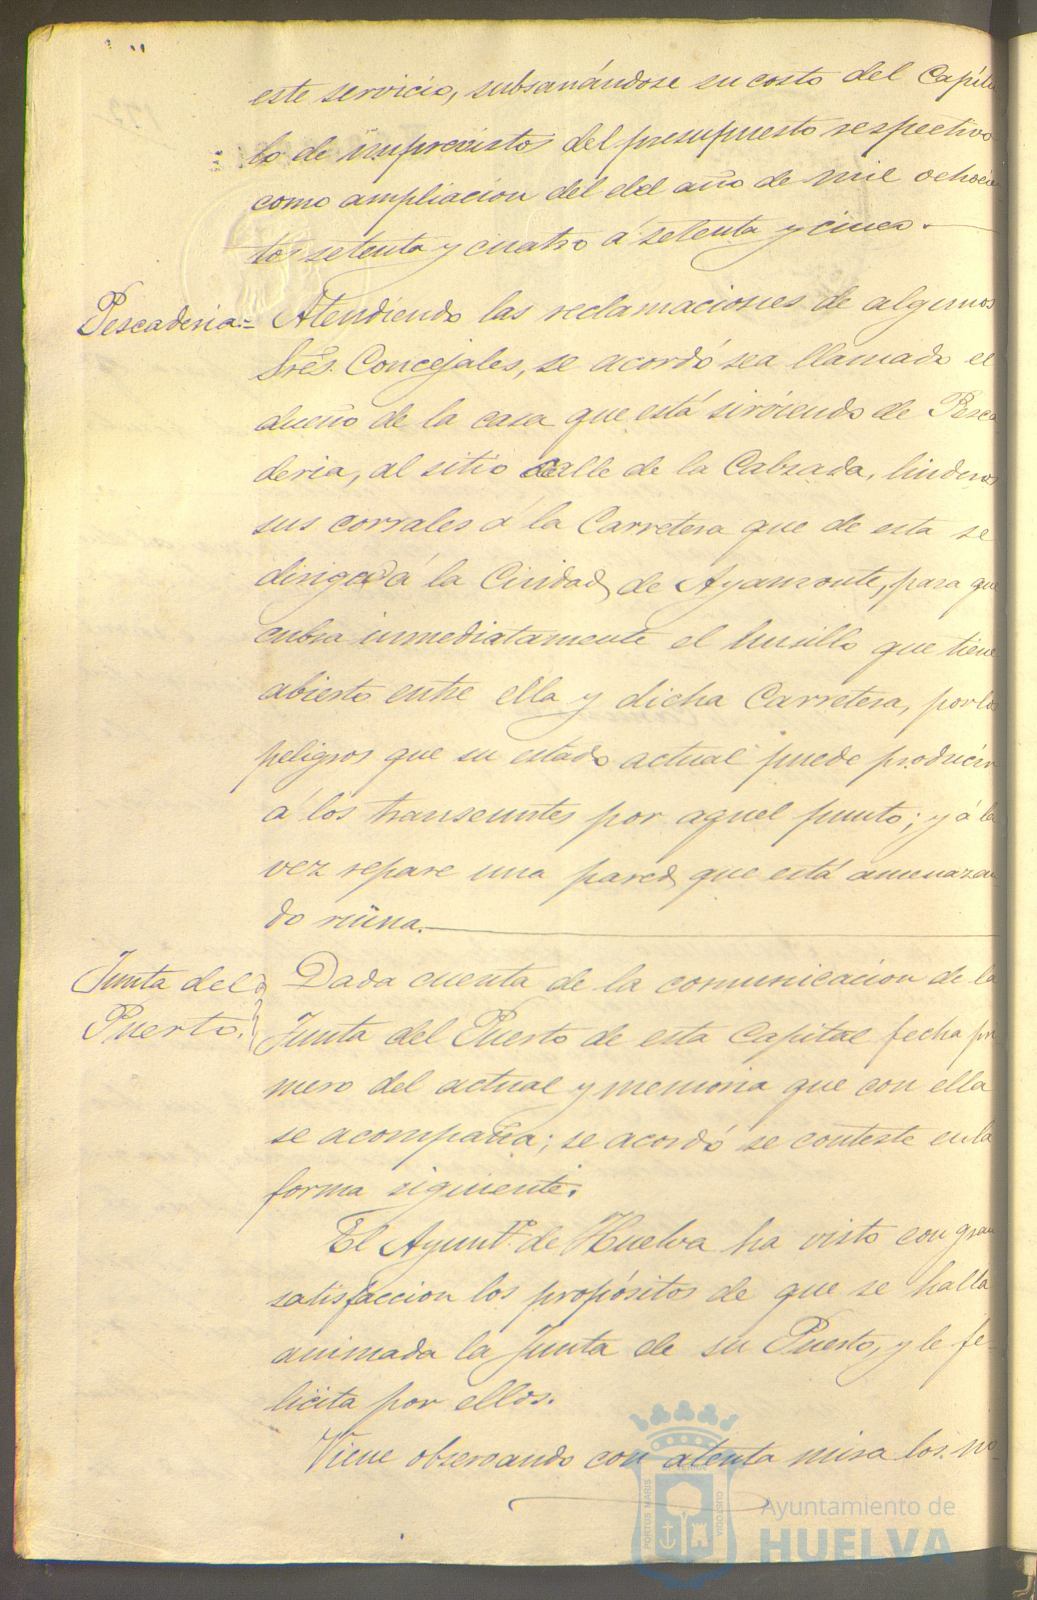 este servicio, subsanándose su costo del Capítu
lo de imprevistos del presupuesto respectivo
como ampliacion del del año de mil ochocien
tos setenta y cuatro á setenta y cinco.
Pescaderia.= Atendiendo las reclamaciones de algunos
Sres. Concejales, se acordó sea llamado el
dueño de la casa que está sirviendo de Pesca
deria, al sitio calle de la Calzada, linderos
sus corrales á la Carretera que de esta se
dirige á la Ciudad de Ayamonte, para que
cubra inmediatamente el husillo que tiene
abierto entre ella y dicha Carretera, por los
peligros que su estado actual puede producir
á los transeuntes por aquel punto; y á la
vez repare una pared que está amenazan
do ruina.
Junta del Puerto. Dada cuenta de la comunicacion de la
Junta del Puerto de esta Capital fecha pri
mero del actual y memoria que con ella
se acompaña; se acordó se conteste en la
forma siguiente.
El Ayuntº. de Huelva ha visto con gran
satisfaccion los propósitos de que se halla
animada la Junta de su Puerto, y le fe-
licita por ellos.
Viene observando con atenta mira los no-
PORTUS MARIS CUSTODIA
Ayuntamiento de
HUELVA